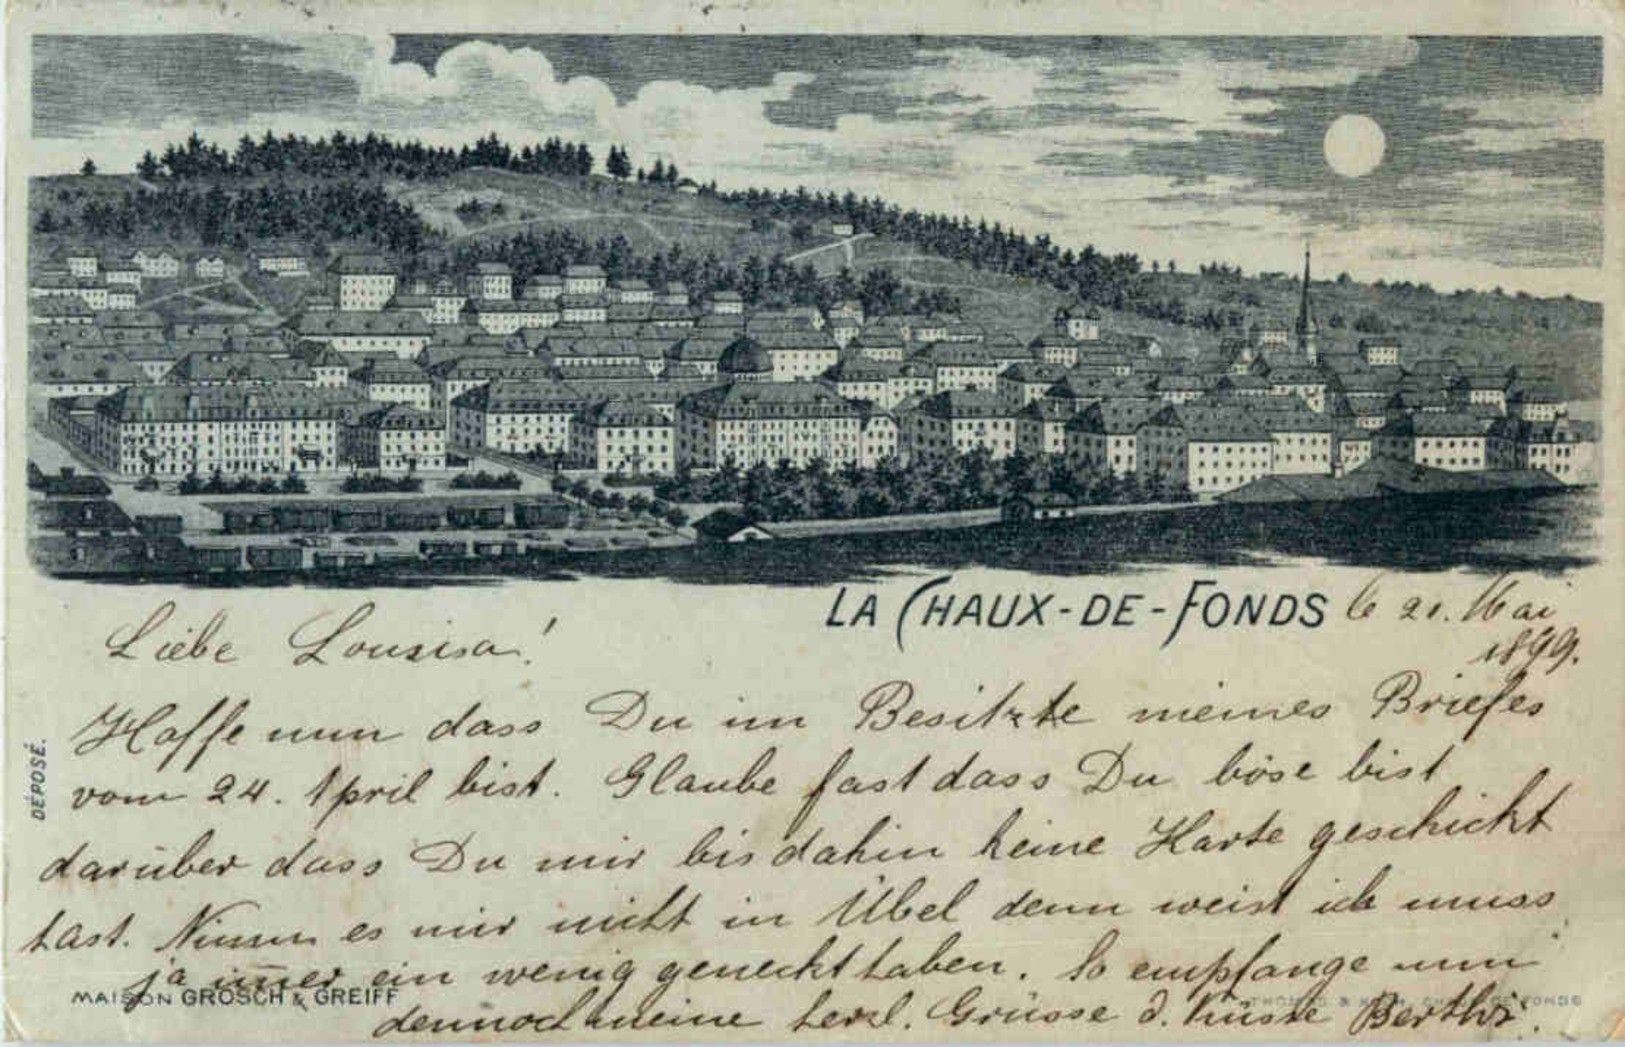 LA CHAUX-DE-FONDS le 21. Mai
1899.
Liebe Lousisa!
Hoffe nun dass Du im Besitzte meines Briefes
vom 24. April bist. Glaube fast dass Du böse bist
darüber dass Du mir bis dahin keine Karte geschickt
hast. Nimm es mir nicht in Übel denn weist ich muss
ja imer ein wenig geneckt haben. So empfange nun
dennoch meine herzl. Grüsse & Küsse
DÉPOSÉ.
MAISON GROSCH & GREIFF